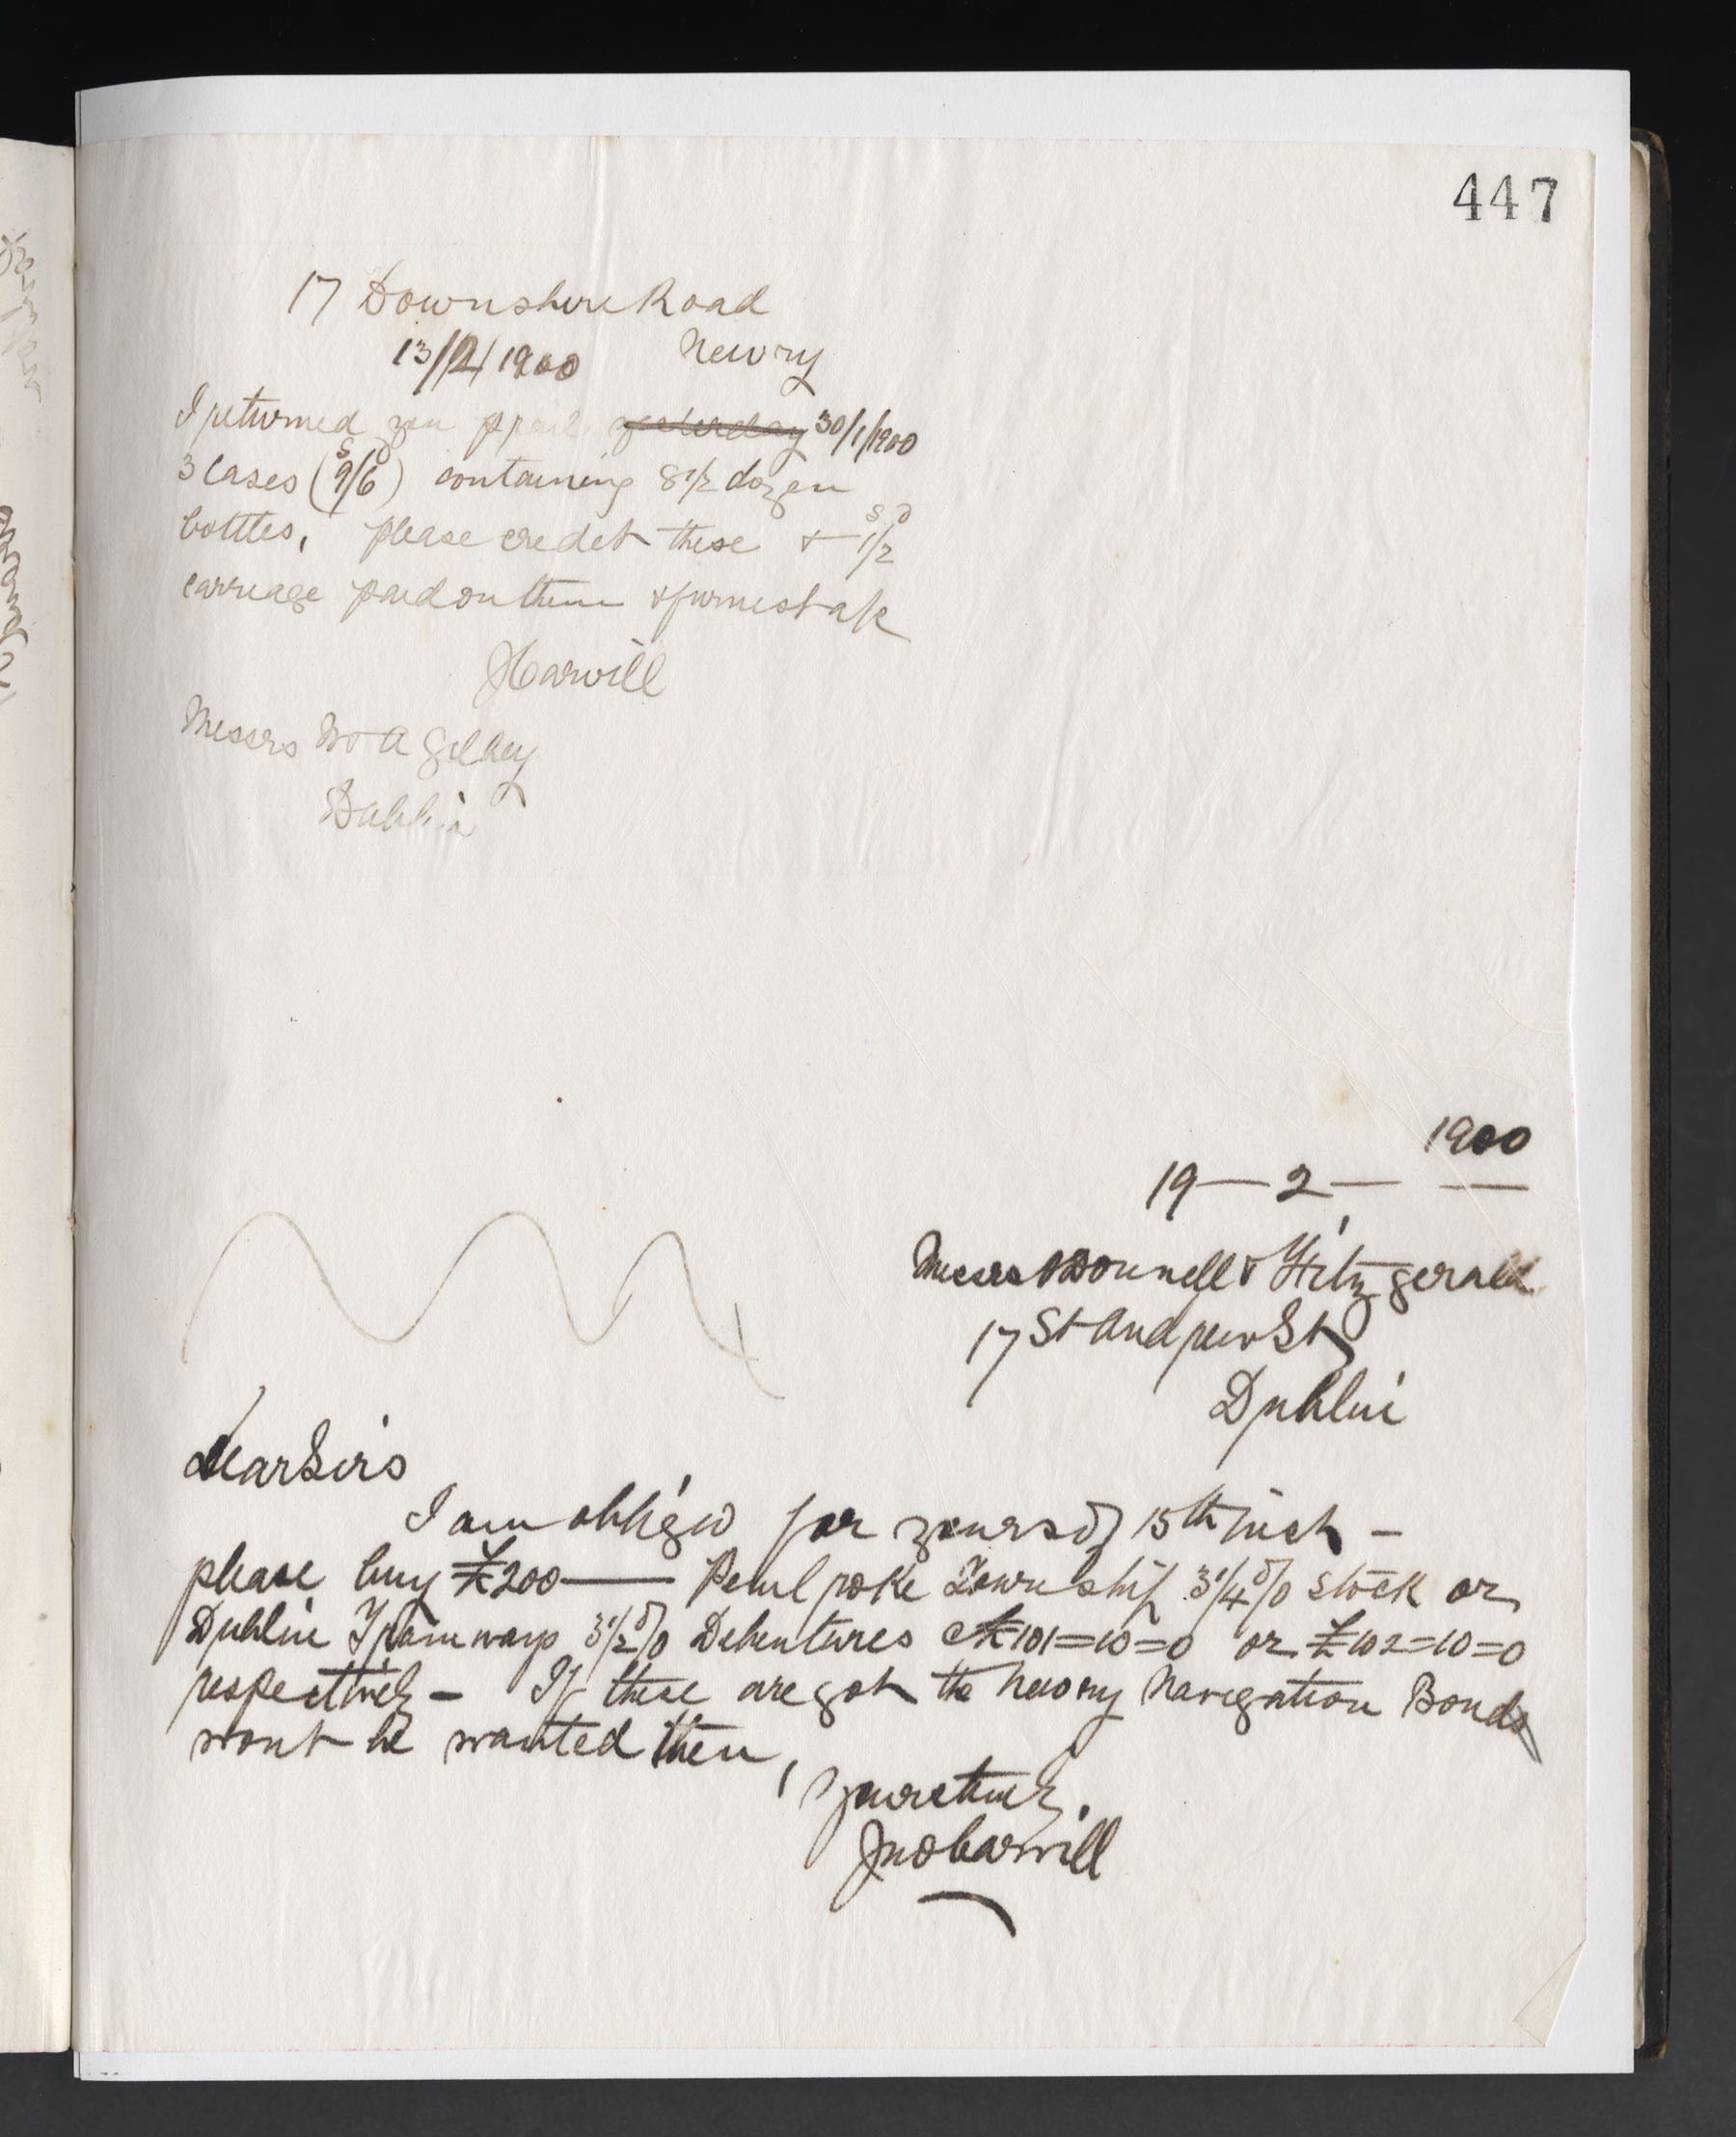 447
17 Downshire Road
13/2/1900 Newry
I returned you yesterday 30/1/1900
3 Cases (9/6) containing 8 1/2 dozen
bottles, please credit these & 1/2
carriage paid on them & furnish a/c
JCarvill
Messrs W & A Gilbey
Dublin
1900
19 — 2 —
Messrs O'Donnell & Fitzgerald
17 St Andrew St
Dublin
Dear Sirs
I am obliged for yours of 15th inst —
please buy £200 — Pembroke Township 3 1/4 % stock or
Dublin Tramways 3 1/2 % Debentures @ £101=10=0 or £102=10=0
respectively — If these are got the Newry Navigation Bonds
wont be wanted then,
Yours truly.
Jno Carvill